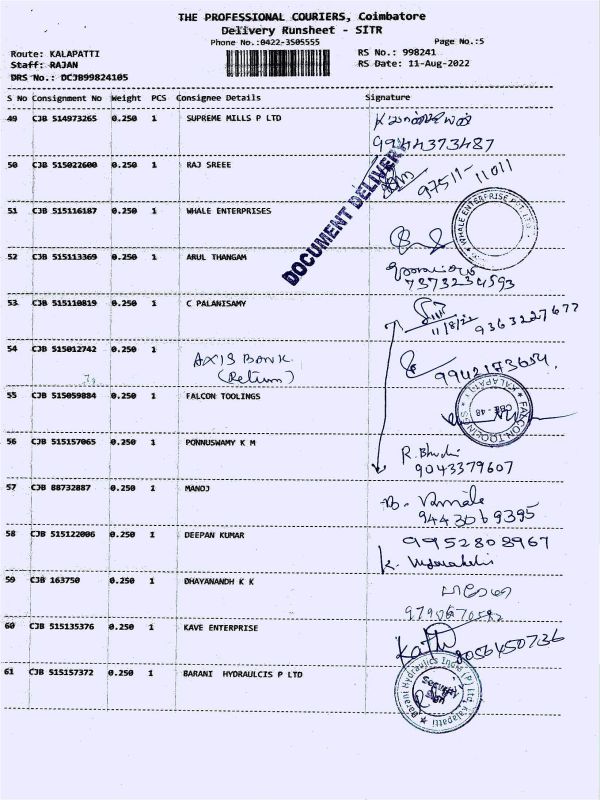 THE PROFESSIONAL COURIERS, Coimbatore
Delivery Runsheet - SITR
Phone No.:0422-3505555 Page No.:5
Route: KALAPATTI RS No.: 998241
Staff: RAJAN RS Date: 11-Aug-2022
DRS No.: DCJB99824105
S No Consignment No Weight PCS Consignee Details Signature
49 CJB 514973265 0.250 1 SUPREME MILLS P LTD
9944373487
DOCUMENT DELIVERY
50 CJB 515022600 0.250 1 RAJ SREEE 97511-11011
51 CJB 515116187 0.250 1 WHALE ENTERPRISES WHALE ENTERPRISE PVT. LTD.
52 CJB 515113369 0.250 1 ARUL THANGAM
7373234593
53 CJB 515110819 0.250 1 C PALANISAMY 11/8/22 9363227677
54 CJB 515012742 0.250 1 AXIS BANK (Return) 9942173654
55 CJB 515059884 0.250 1 FALCON TOOLINGS KALAPATTI CBE-48
56 CJB 515157065 0.250 1 PONNUSWAMY K M
9043379607
57 CJB 88732887 0.250 1 MANOJ
9443069395
58 CJB 515122006 0.250 1 DEEPAN KUMAR 9952808967
59 CJB 163750 0.250 1 DHAYANANDH K K
60 CJB 515135376 0.250 1 KAVE ENTERPRISE 8056450736
61 CJB 515157372 0.250 1 BARANI HYDRAULCIS P LTD Barani Hydraulics India (P) Ltd. Kalapatti Security